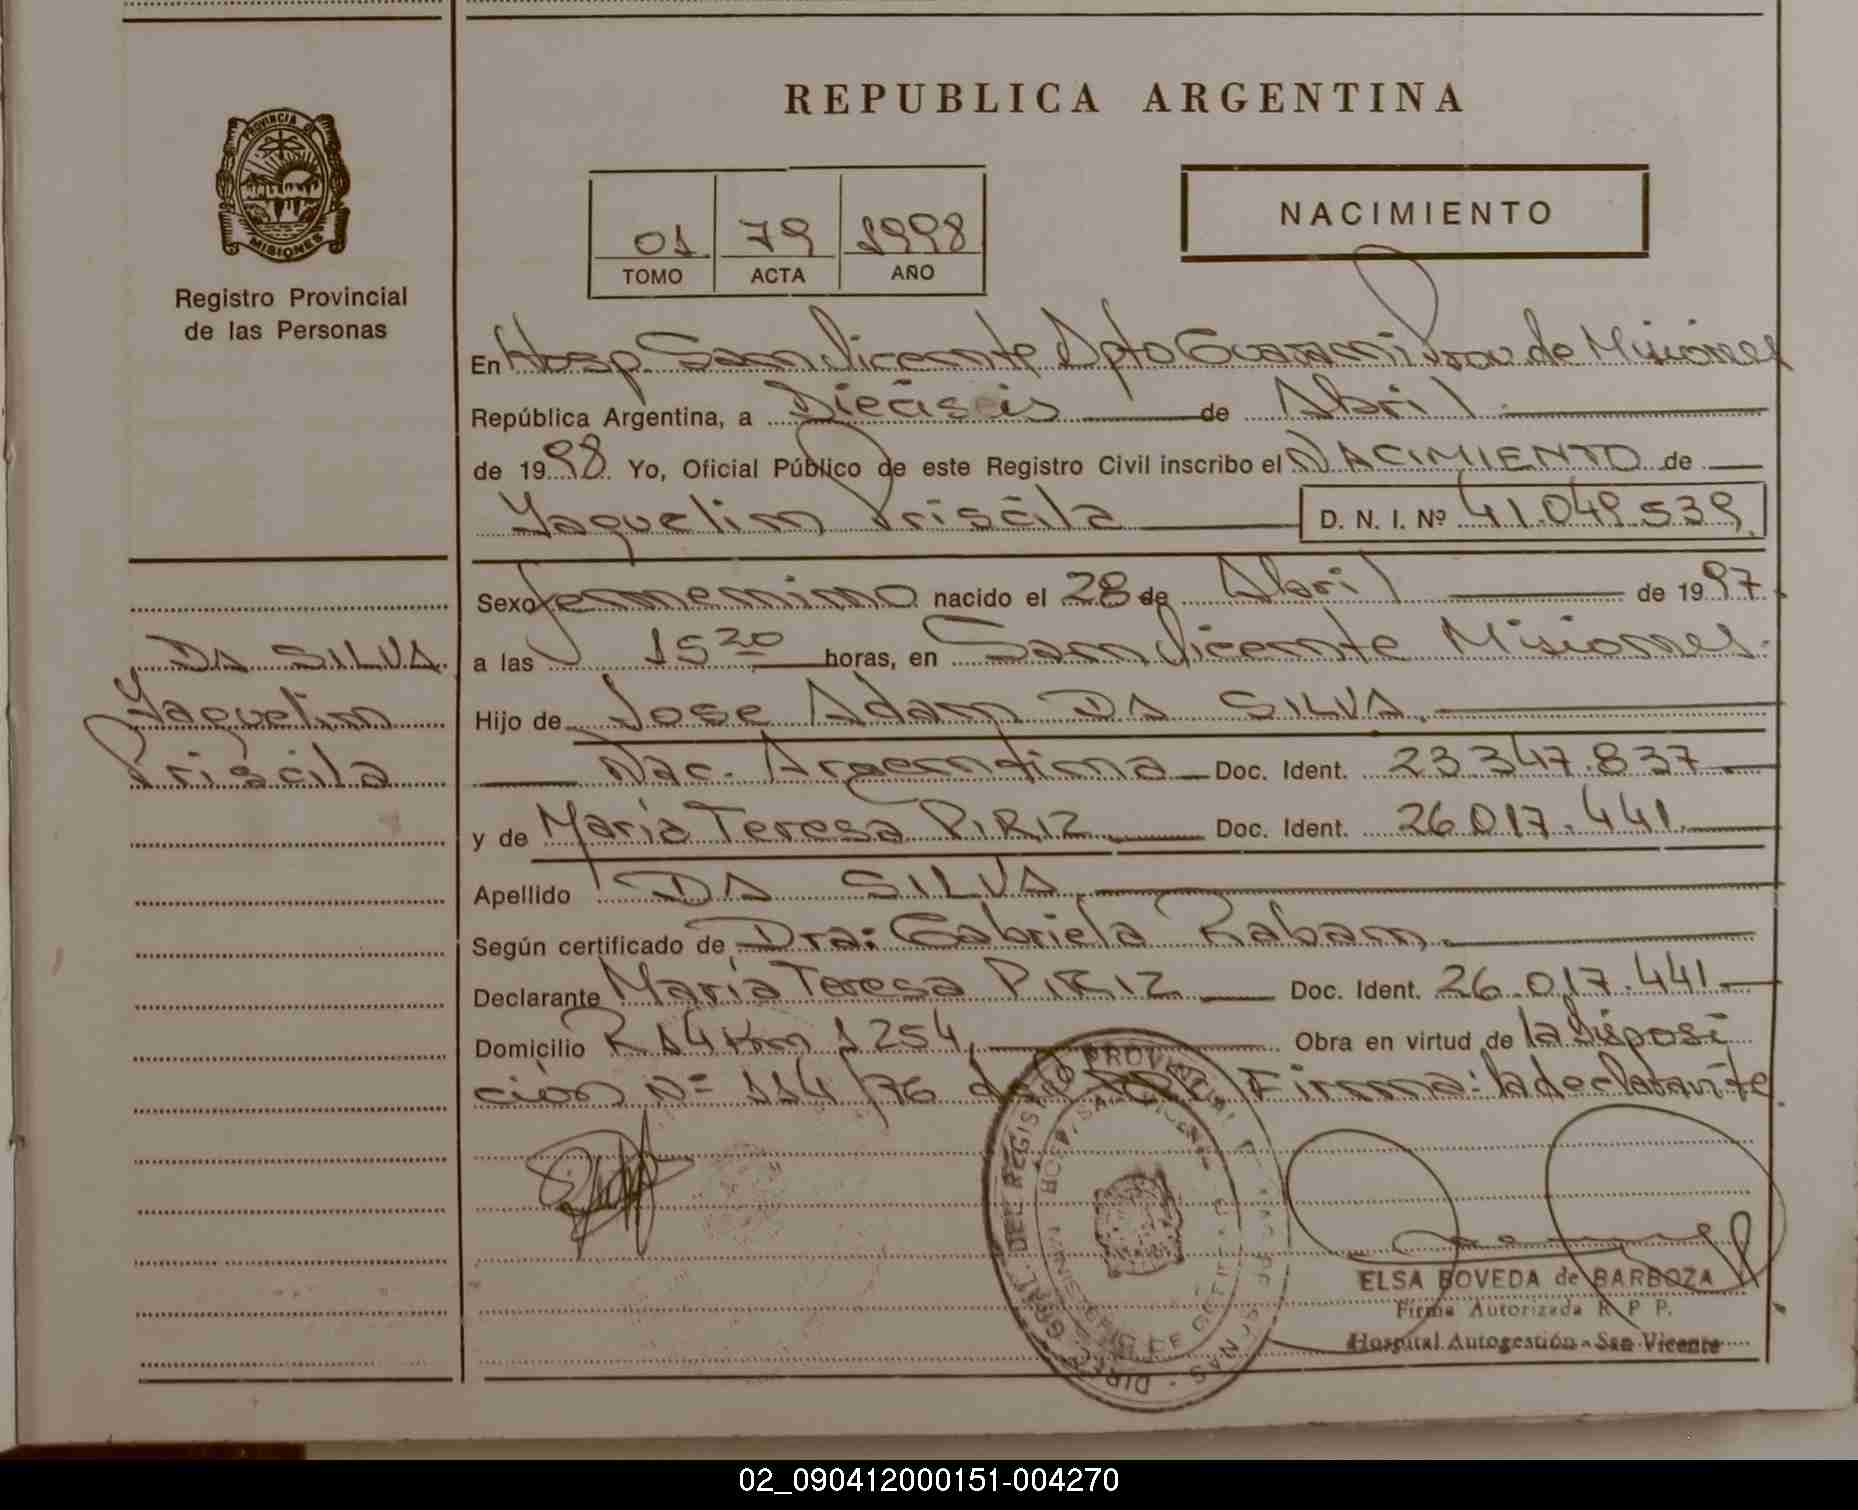 REPUBLICA ARGENTINA
PROVINCIA DE
MISIONES
Registro Provincial
de las Personas
01 79 1998
TOMO ACTA AÑO
NACIMIENTO
En Hosp. San Vicente Dpto Guarani Prov de Misiones
República Argentina, a Dieciseis de Abril
de 1998 Yo, Oficial Público de este Registro Civil inscribo el NACIMIENTO de
Yaquelin Priscila D. N. I. Nº 41.049.539
Sexo femenino nacido el 28 de Abril de 1997
a las 15 20 horas, en San Vicente Misiones
DA SILVA
Yaquelin
Priscila
Hijo de Jose Adan DA SILVA
Nac. Argentina Doc. Ident. 23347.837
y de María Teresa PIRIZ Doc. Ident. 26017.441
Apellido DA SILVA
Según certificado de Dra: Gabriela Raban
Declarante María Teresa PIRIZ Doc. Ident. 26.017.441
Domicilio R 14 Km 1254, Obra en virtud de la Disposi
ción Nº 114/76 Firma: la declarante
DIREC. GRAL. DEL REGISTRO PROVINCIAL
HOSP. SAN VICENTE
MINISTERIO DE
ELSA BOVEDA de BARBOZA
Firma Autorizada R. P. P.
Hospital Autogestión - San Vicente
02_090412000151-004270